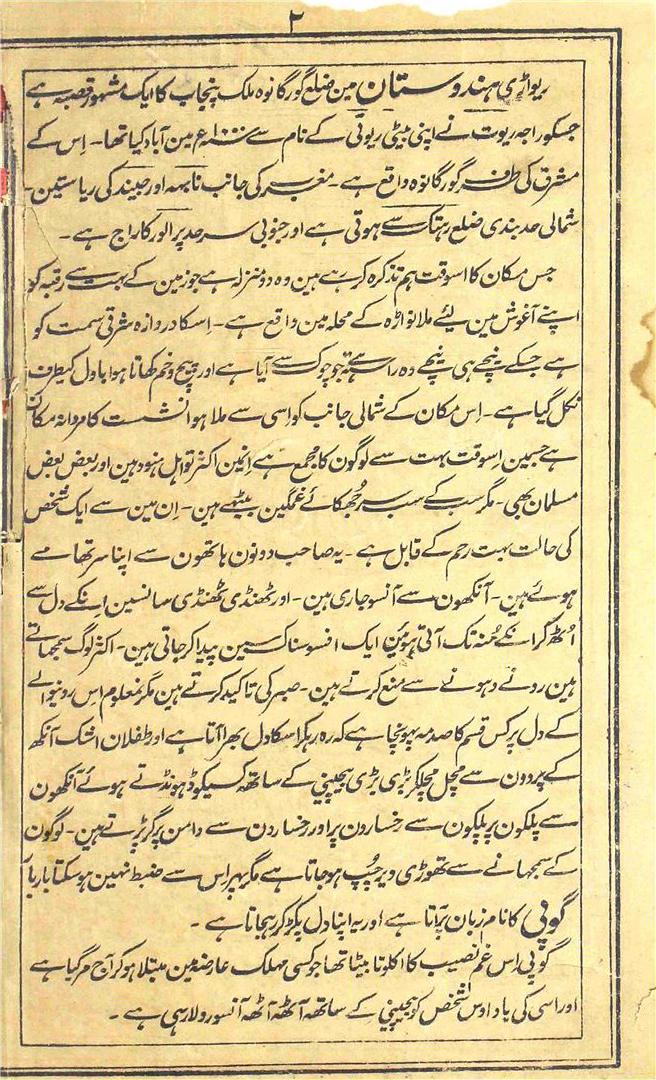 ۲
ریواڑی ہندوستان مین ضلع گورگانوہ ملک پنجاب کا ایک مشہور قصبہ ہے
جسکو راجہ ریوت نے اپنی بیٹی ریوتی کے نام سے سنہ ۱۰۰۰ع مین آباد کیا تھا۔ اِس کے
مشرق کی طرف گورگانوہ واقع ہے۔ مغرب کی جانب نابہہ اور جیند کی ریاستین۔
شمالی حد بندی ضلع رہتاک سے ہوتی ہے اور جنوبی سرحد پر الور کا راج ہے۔
جس مکان کا اسوقت ہم تذکرہ کر رہے ہین وہ دو منزلہ ہے جو زمین کے بہت سے رقبہ کو
اپنے آغوش مین لیئے ملانواڑہ کے محلہ مین واقع ہے۔ اِسکا دروازہ مشرقی سمت کو
ہے جسکے نیچے ہی نیچے وہ راستہ ہے جو چوک سے آیا ہے اور پیچ و خم کھاتا ہوا باول کیطرف
نکل گیا ہے۔ اِس مکان کے شمالی جانب کو اسی سے ملا ہوا نشست کا مردانہ مکان
ہے جسمین اِسوقت بہت سے لوگون کا مجمع ہے اِنمین اکثر تو اہل ہنود ہین اور بعض بعض
مسلمان بھی۔ مگر سب کے سب سر جُھکائے غمگین بیٹھے ہین۔ اِن مین سے ایک شخص
کی حالت بہت رحم کے قابل ہے۔ یہ صاحب دونون ہاتھون سے اپنا سر تھامے
ہوئے ہین۔ آنکھون سے آنسو جاری ہین۔ اور ٹھنڈی ٹھنڈی سانسین اِنکے دل سے
اُٹھ کر انکے مُنہ تک آتی ہوئین ایک افسوسناک سین پیدا کر جاتی ہین۔ اکثر لوگ سمجھاتے
ہین رونے دہونے سے منع کرتے ہین۔ صبر کی تاکید کرتے ہین مگر نمعلوم اس رونیوالے
کے دل پر کس قسم کا صدمہ پہونچا ہے کہ رہ رہکر اسکا دل بھرا آتا ہے اور طفلان اشک آنکھ
کے پردون سے مچل مچلکر بڑی بڑی بیچینی کے ساتھہ کسیکو ڈہونڈتے ہوئے آنکھون
سے پلکون پر پلکون سے رخسارون پر اور رخسارون سے دامن پر گر پڑتے ہین۔ لوگون
کے سمجھانے سے تھوڑی دیر چُپ ہو جاتا ہے مگر پہر اِس سے ضبط نہین ہو سکتا بار بار
گوپی کا نام زبان پر آتا ہے اور یہ اپنا دل پکڑ کر رہجاتا ہے۔
گوپی اِس غم نصیب کا اکلوتا بیٹا تھا جو کسی مہلک عارضہ مین مبتلا ہو کر آج مر گیا ہے
اور اسی کی یاد اوس شخص کو بیچینی کے ساتھہ آٹھہ آٹھہ آنسو رولا رہی ہے۔